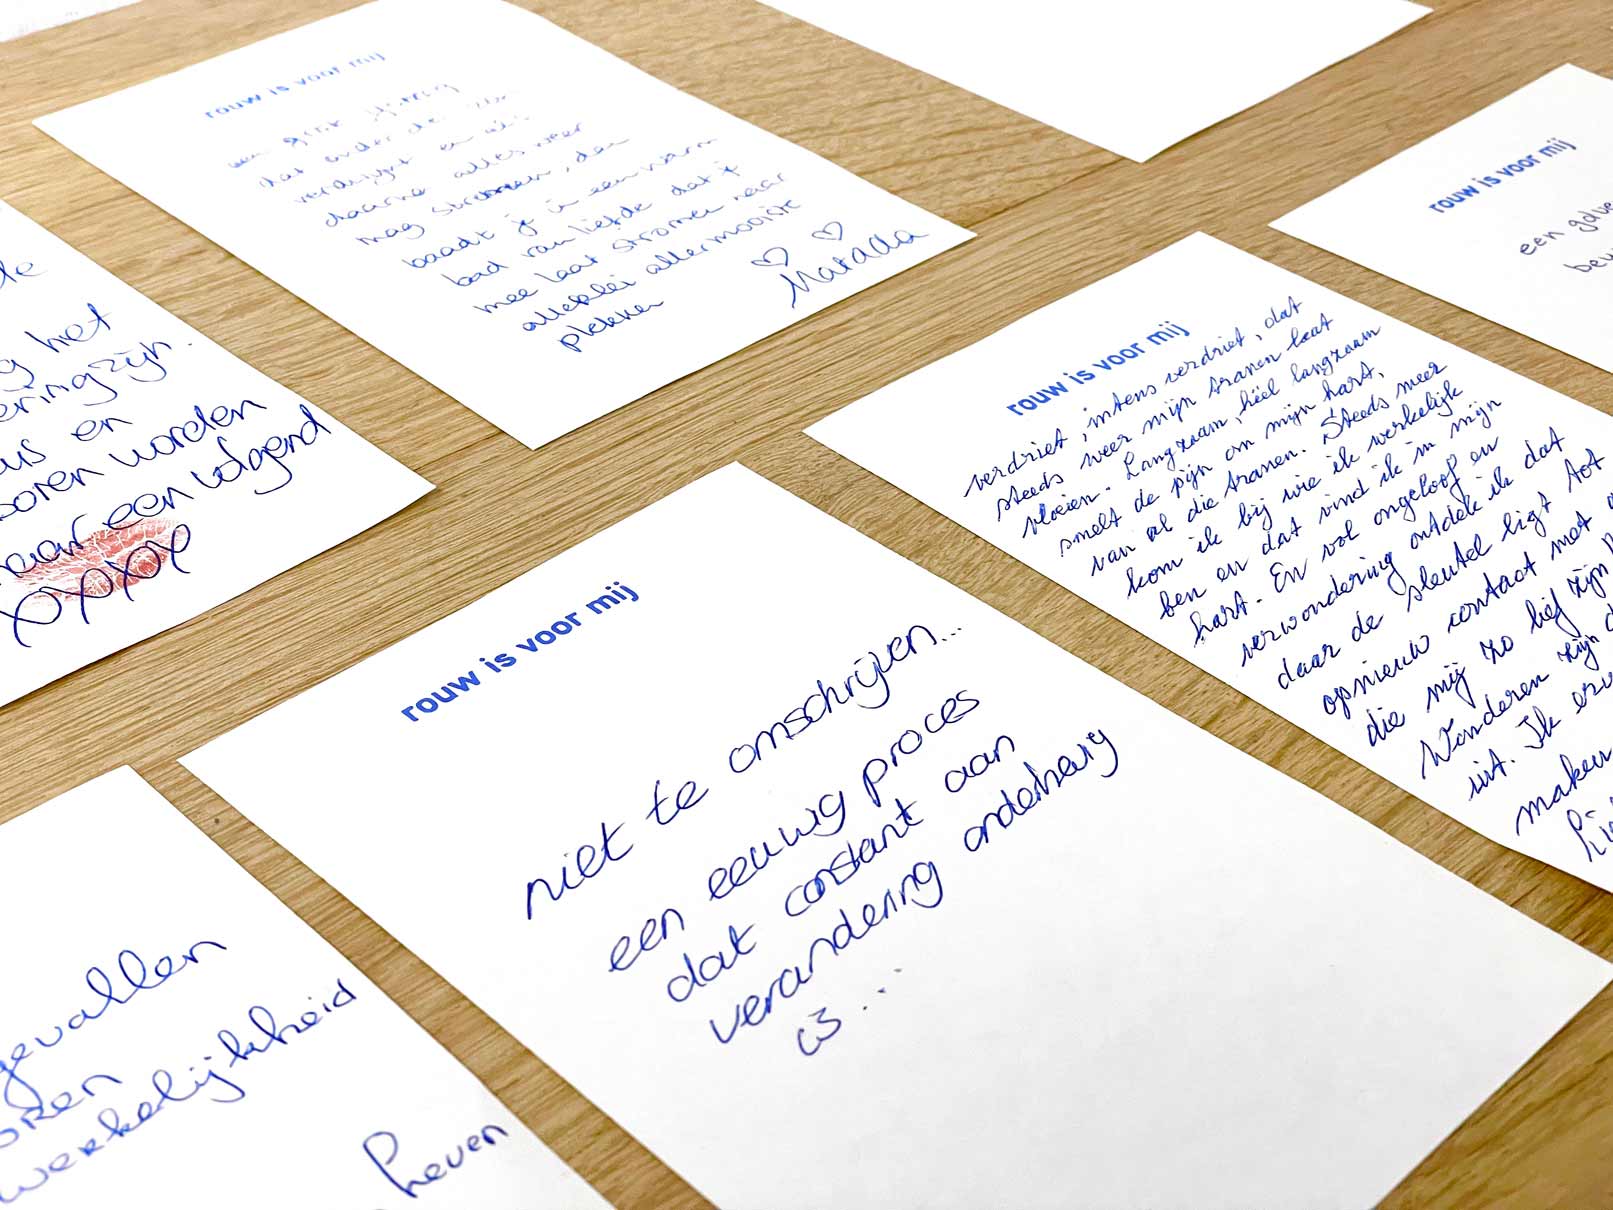 rouw is voor mij
een
dat onder de
verdwijnt en als
daarna alles weer
mag stromen, dan
baadt je in een warm
bad van liefde dat je
mee laat stromen naar
allerlei allermooiste
plekken
de
het
zijn.
en
worden
naar een volgend
XXXX
rouw is voor mij
een
rouw is voor mij
verdriet, intens verdriet, dat
steeds weer mijn tranen laat
vloeien. Langzaam, héél langzaam
smelt de pijn om mijn hart,
van al die tranen. Steeds meer
kom ik bij wie ik werkelijk
ben en dat vind ik in mijn
hart. En vol ongeloof en
verwondering ontdek ik dat
daar de sleutel ligt tot
opnieuw contact met
die mij zo lief zijn
Wonderen zijn
uit. Ik
maken
rouw is voor mij
niet te omschrijven...
een eeuwig proces
dat constant aan
verandering onderhevig
is...
gevallen
werkelijkheid
heven